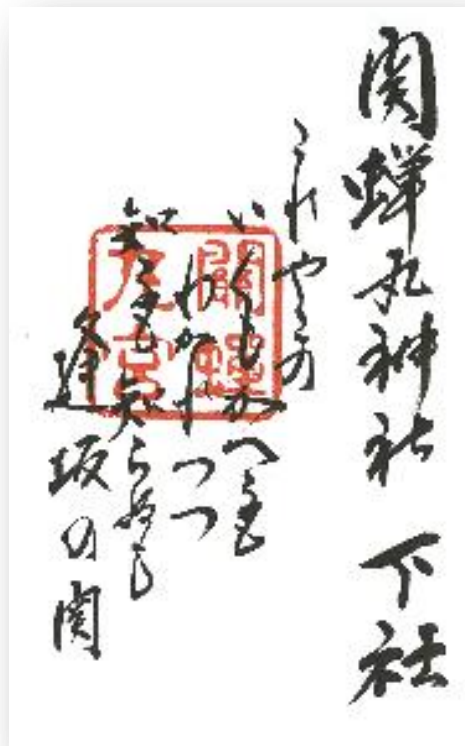 関蝉丸神社 下社
これやこの
いくもかへるも
わかれつつ
知るも知らぬも
逢坂の関
關蟬
丸宮